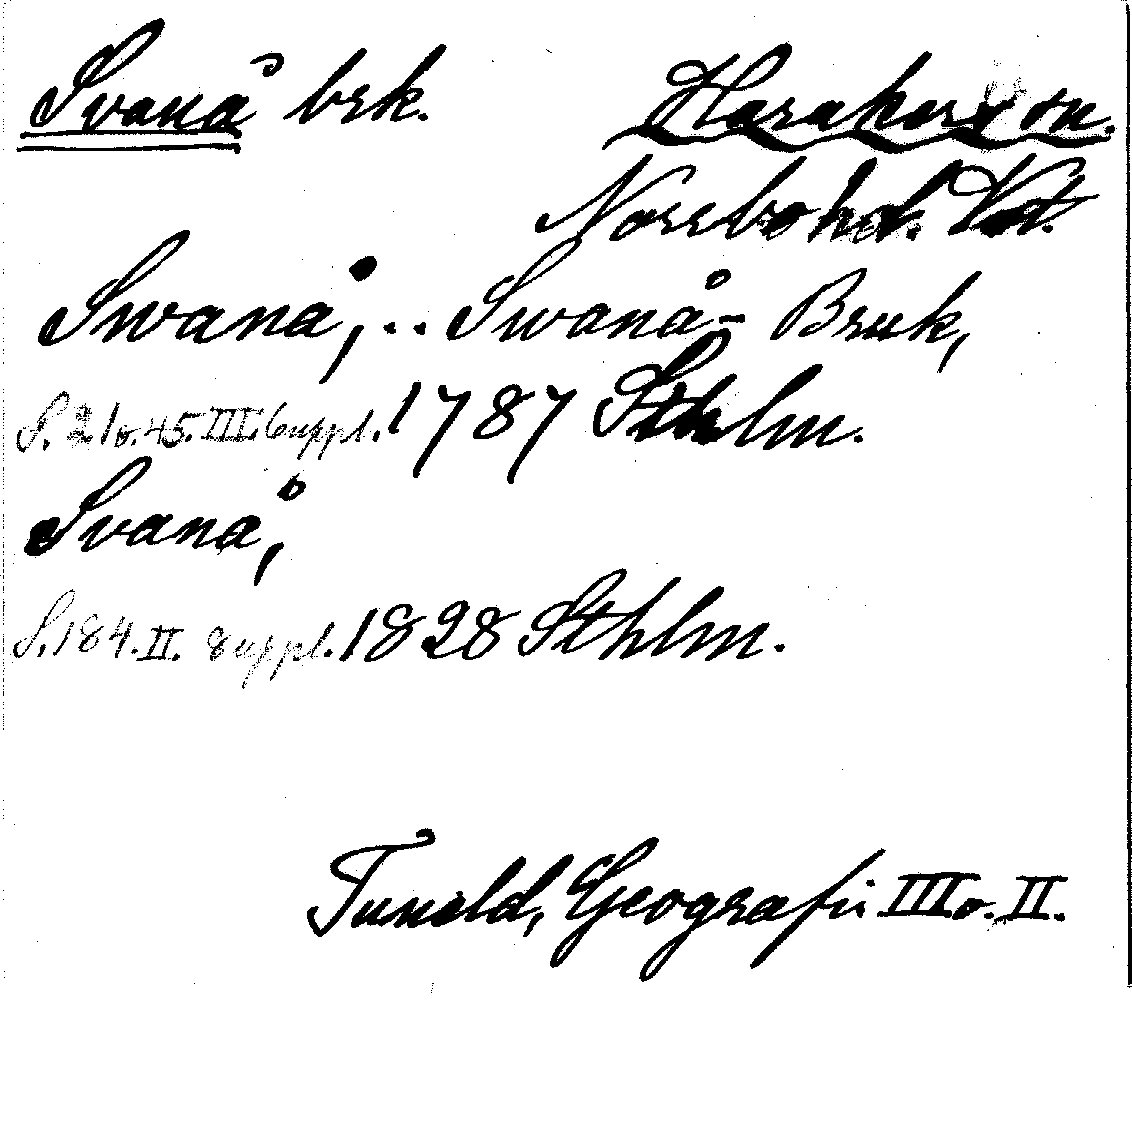 Svanå brk. Harakers sn.
Norrbo hd. Vstm.
Swanå, .. Swanå- Bruk,
S. 21 o. 45. III. Suppl. 1787 Sthlm.
Svanå,
S. 184. II. Suppl. 1828 Sthlm.
Tuneld, Geografi III o. II.